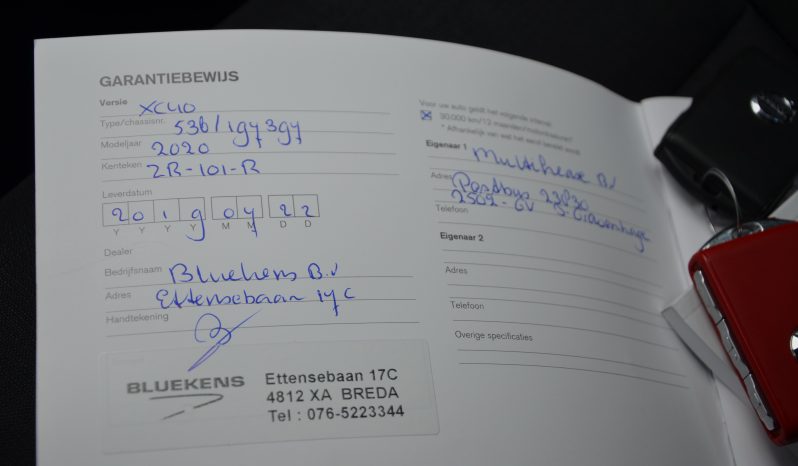 GARANTIEBEWIJS
Versie XC40
Type/chassisnr. 536/197397
Modeljaar 2020
Kenteken ZR-101-R
Leverdatum
2019 07 22
Y Y Y Y M M D D
Dealer
Bedrijfsnaam Bluekens B.V
Adres Ettensebaan 17C
Handtekening
BLUEKENS
Ettensebaan 17C
4812 XA BREDA
Tel : 076-5223344
Voor uw auto geldt het volgende interval:
30.000 km/12 maanden/motordraaiuren*
* Afhankelijk van wat het eerst bereikt wordt.
Eigenaar 1 Multilease BV
Adres Postbus 23830
2502-GV 's-Gravenhage
Telefoon
Eigenaar 2
Adres
Telefoon
Overige specificaties